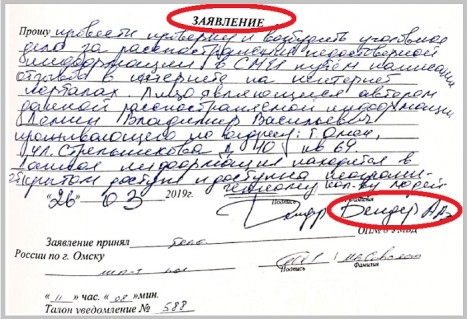 ЗАЯВЛЕНИЕ
Прошу провести проверку и возбудить уголовное
дело за распространение недостоверной
информации в СМИ путём написания
отзывов в интернете на интернет
порталах. Лицо являющееся автором
данной распространяемой информации
Владимир Васильевич
проживающего по адресу: г. Омск,
ул. Стрельникова д 10 кв 69
Данная информация находится в
открытом доступе и доступна неограни-
ченному кол-ву людей
"26" 03 2019г.
Подпись
Бендер А.А.
Заявление принял
России по г. Омску
Подпись Фамилия
"11" час. "08" мин.
Талон уведомление № 588